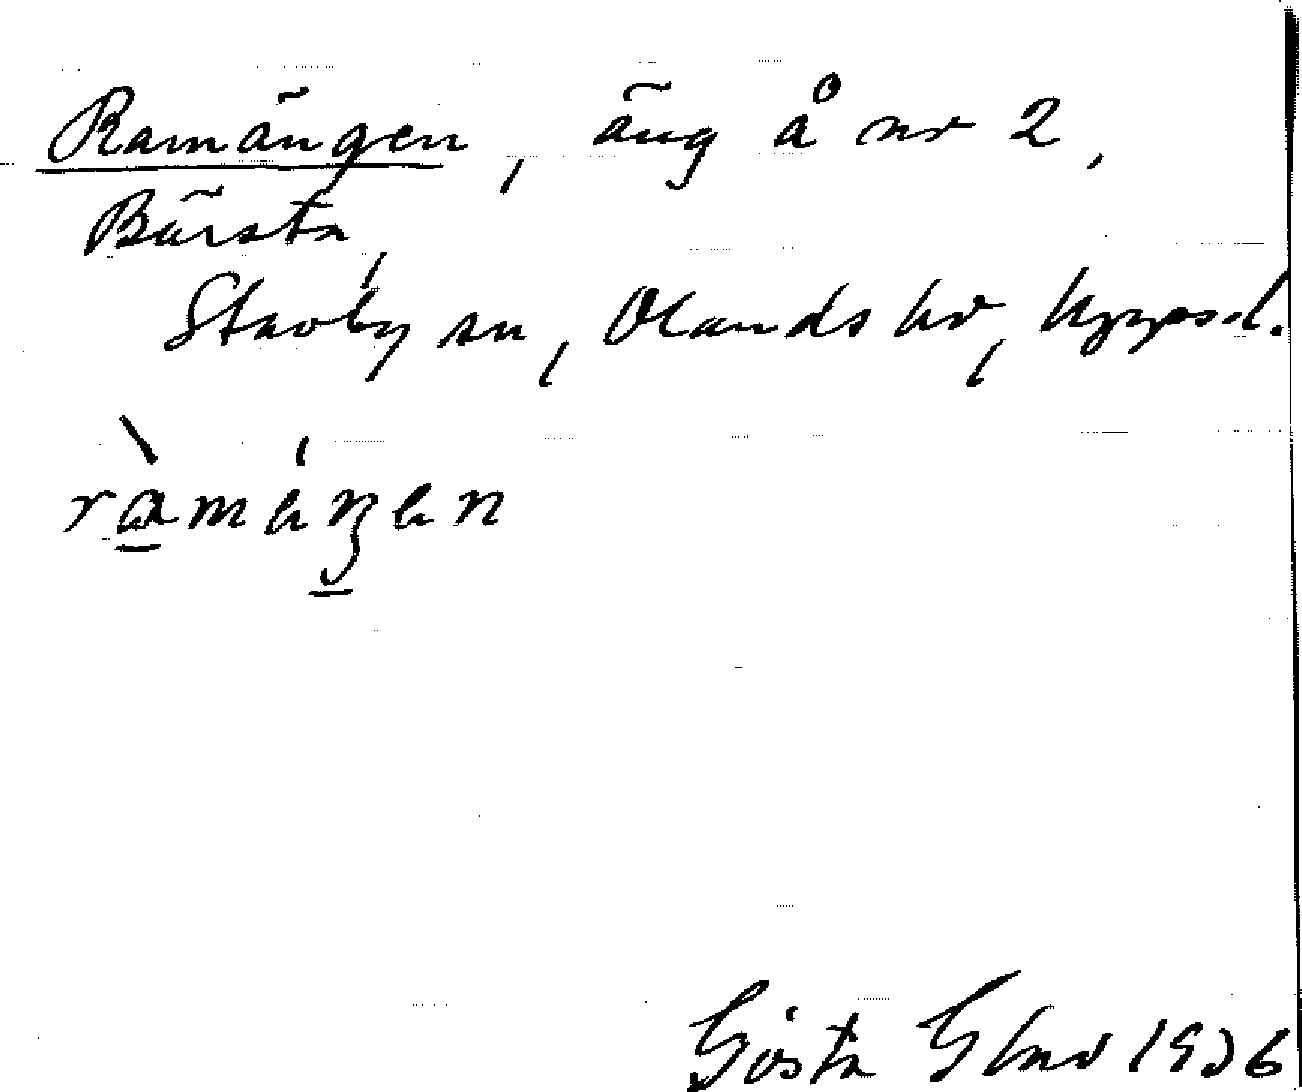 Ramängen, äng å nr 2,
Bärsta,
Stavby sn, Olands hd, Uppsal.
ràmängen
Gösta 1936